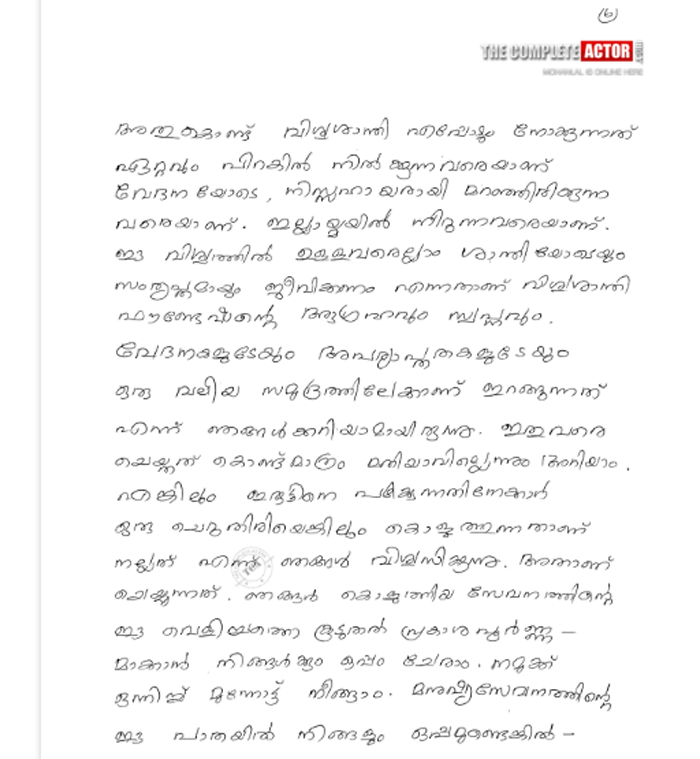 (6)
THE COMPLETE ACTOR
MOHANLAL IS ONLINE HERE
അതുകൊണ്ട് വിശ്വശാന്തി എപ്പോഴും നോക്കുന്നത്
ഏറ്റവും പിറകിൽ നിൽക്കുന്നവരെയാണ്
വേദനയോടെ, നിസ്സഹായരായി മറഞ്ഞിരിക്കുന്ന
വരെയാണ്. ഇല്ലായ്മയിൽ നീറുന്നവരെയാണ്.
ഈ വിശ്വത്തിൽ ഉള്ളവരെല്ലാം ശാന്തിയോടെയും
സംതൃപ്തമായും ജീവിക്കണം എന്നതാണ് വിശ്വശാന്തി
ഫൗണ്ടേഷന്റെ ആഗ്രഹവും സ്വപ്നവും.
വേദനകളുടേയും അപര്യാപ്തതകളുടേയും
ഒരു വലിയ സമുദ്രത്തിലേക്കാണ് ഇറങ്ങുന്നത്
എന്ന് ഞങ്ങൾക്കറിയാമായിരുന്നു. ഇതുവരെ
ചെയ്തത് കൊണ്ട് മാത്രം മതിയാവില്ലെന്നും അറിയാം.
എങ്കിലും ഇരുട്ടിനെ പഴിക്കുന്നതിനേക്കാൾ
ഒരു ചെറുതിരിയെങ്കിലും കൊളുത്തുന്നതാണ്
നല്ലത് എന്ന് ഞങ്ങൾ വിശ്വസിക്കുന്നു. അതാണ്
ചെയ്യുന്നത്. ഞങ്ങൾ കൊളുത്തിയ സേവനത്തിന്റെ
ഈ വെളിച്ചത്തെ കൂടുതൽ പ്രകാശപൂർണ്ണ –
മാക്കാൻ നിങ്ങൾക്കും ഒപ്പം ചേരാം. നമുക്ക്
ഒന്നിച്ച് മുന്നോട്ട് നീങ്ങാം. മനുഷ്യസേവനത്തിന്റെ
ഈ പാതയിൽ നിങ്ങളും ഒപ്പമുണ്ടെങ്കിൽ –